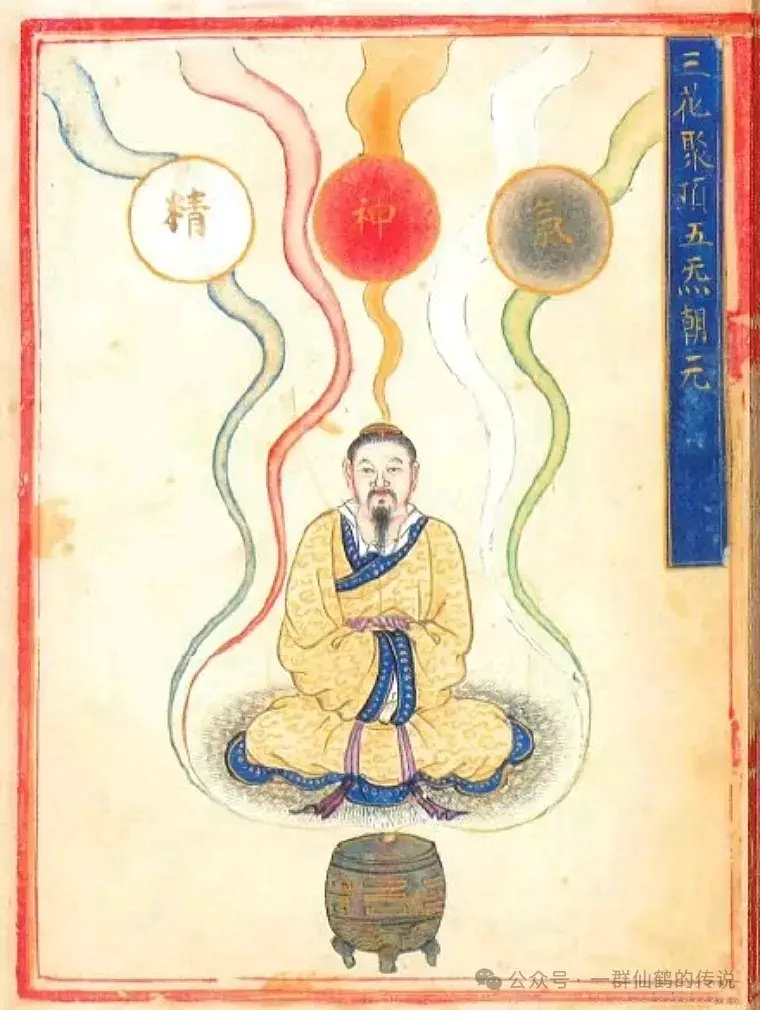 三花聚頂五炁朝元
精
神
氣
公众号·一群仙鹤的传说